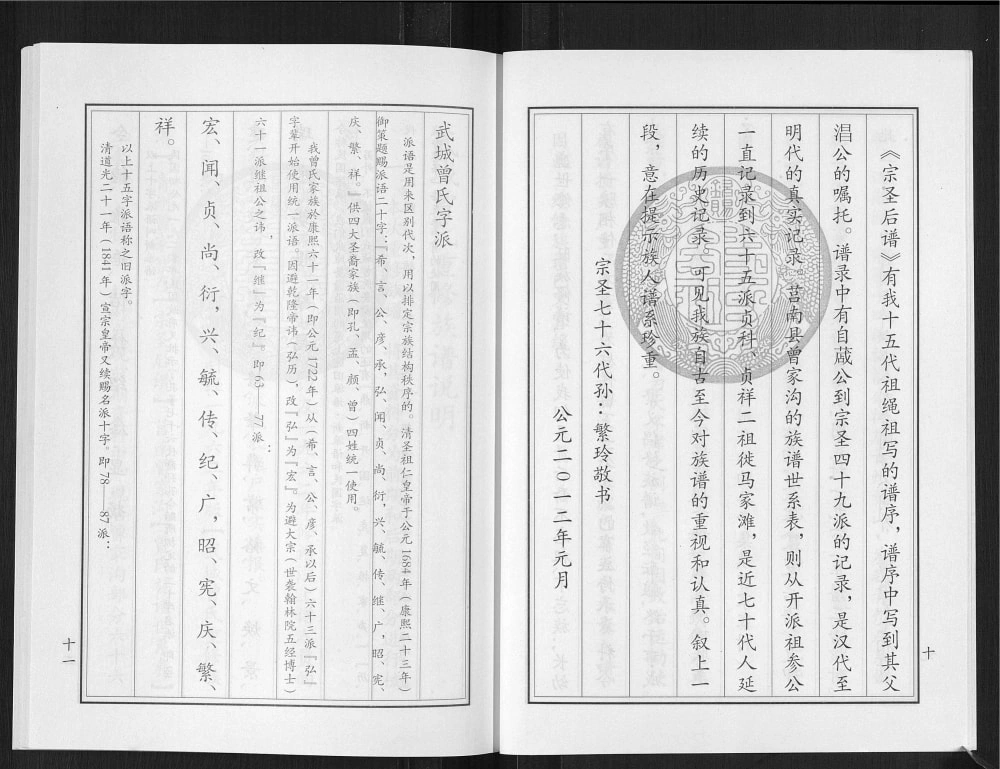 《宗圣后谱》有我十五代祖绳祖写的谱序，谱序中写到其父
淐公的嘱托。谱录中有自蒇公到宗圣四十九派的记录，是汉代至
明代的真实记录。莒南县曾家沟的族谱世系表，则从开派祖参公
一直记录到六十五派贞科、贞祥二祖徙马家滩，是近七十代人延
续的历史记录，可见我族自古至今对族谱的重视和认真。叙上一
段，意在提示族人谱系珍重。
宗圣七十六代孙：繁玲敬书
公元二〇一二年元月
十
武城曾氏字派
派语是用来区别代次，用以排定宗族结构秩序的。清圣祖仁皇帝于公元1684年（康熙二十三年）
御策题赐派语二十字：『希、言、公、彦、承，弘、闻、贞、尚、衍，兴、毓、传、继、广，昭、宪、
庆、繁、祥。』供四大圣裔家族（即孔、孟、颜、曾）四姓统一使用。
我曾氏家族於康熙六十一年（即公元1722年）从（希、言、公、彦、承以后）六十三派『弘』
字辈开始使用统一派语。因避乾隆帝讳（弘历），改『弘』为『宏』。为避大宗（世袭翰林院五经博士）
六十一派继祖公之讳，改『继』为『纪』。即63——77派：
宏、闻、贞、尚、衍，兴、毓、传、纪、广，昭、宪、庆、繁、
祥。
以上十五字派语称之旧派字。
清道光二十一年（1841年）宣宗皇帝又续赐名派十字。即78——87派：
十一